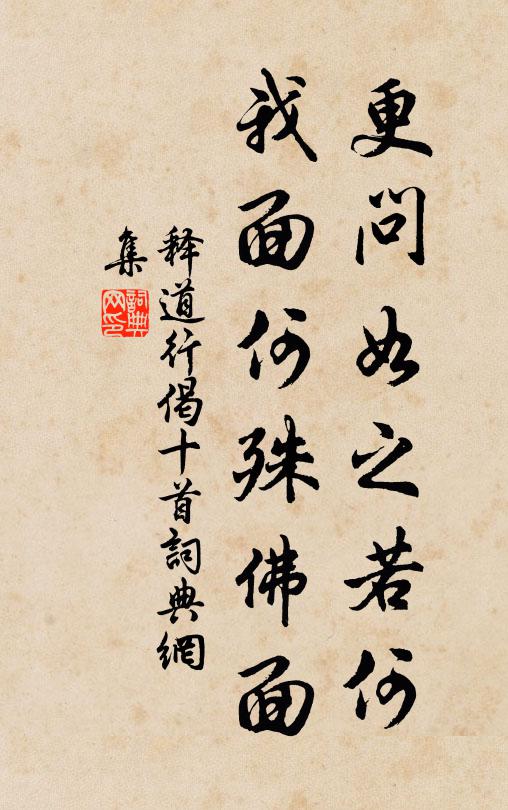 更问如之若何
我面何殊佛面
释道行偈十首詞典網
集
詞典网印